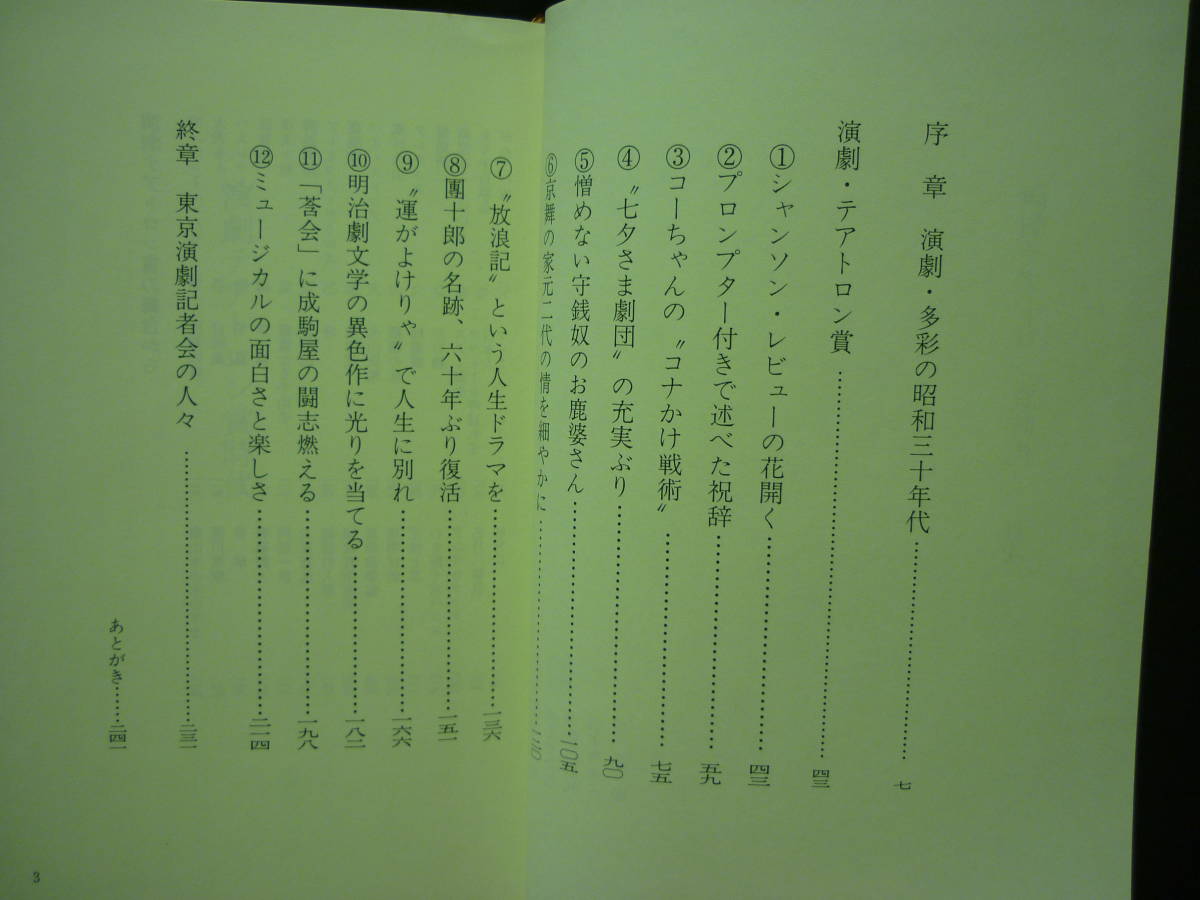 序章 演劇・多彩の昭和三十年代……………………七
演劇・テアトロン賞……………………四三
①シャンソン・レビューの花開く……………………四三
②プロンプター付きで述べた祝辞……………………五九
③コーちゃんの〝コナかけ戦術〟……………………七五
④〝七夕さま劇団〟の充実ぶり……………………九〇
⑤憎めない守銭奴のお鹿婆さん……………………一〇五
⑥京舞の家元二代の情を細やかに……………………一二〇
⑦〝放浪記〟という人生ドラマを……………………一三六
⑧團十郎の名跡、六十年ぶり復活……………………一五一
⑨〝運がよけりゃ〟で人生に別れ……………………一六六
⑩明治劇文学の異色作に光りを当てる……………………一八二
⑪「莟会」に成駒屋の闘志燃える……………………一九八
⑫ミュージカルの面白さと楽しさ……………………二一四
終章 東京演劇記者会の人々……………………二三一
あとがき……二四一
3